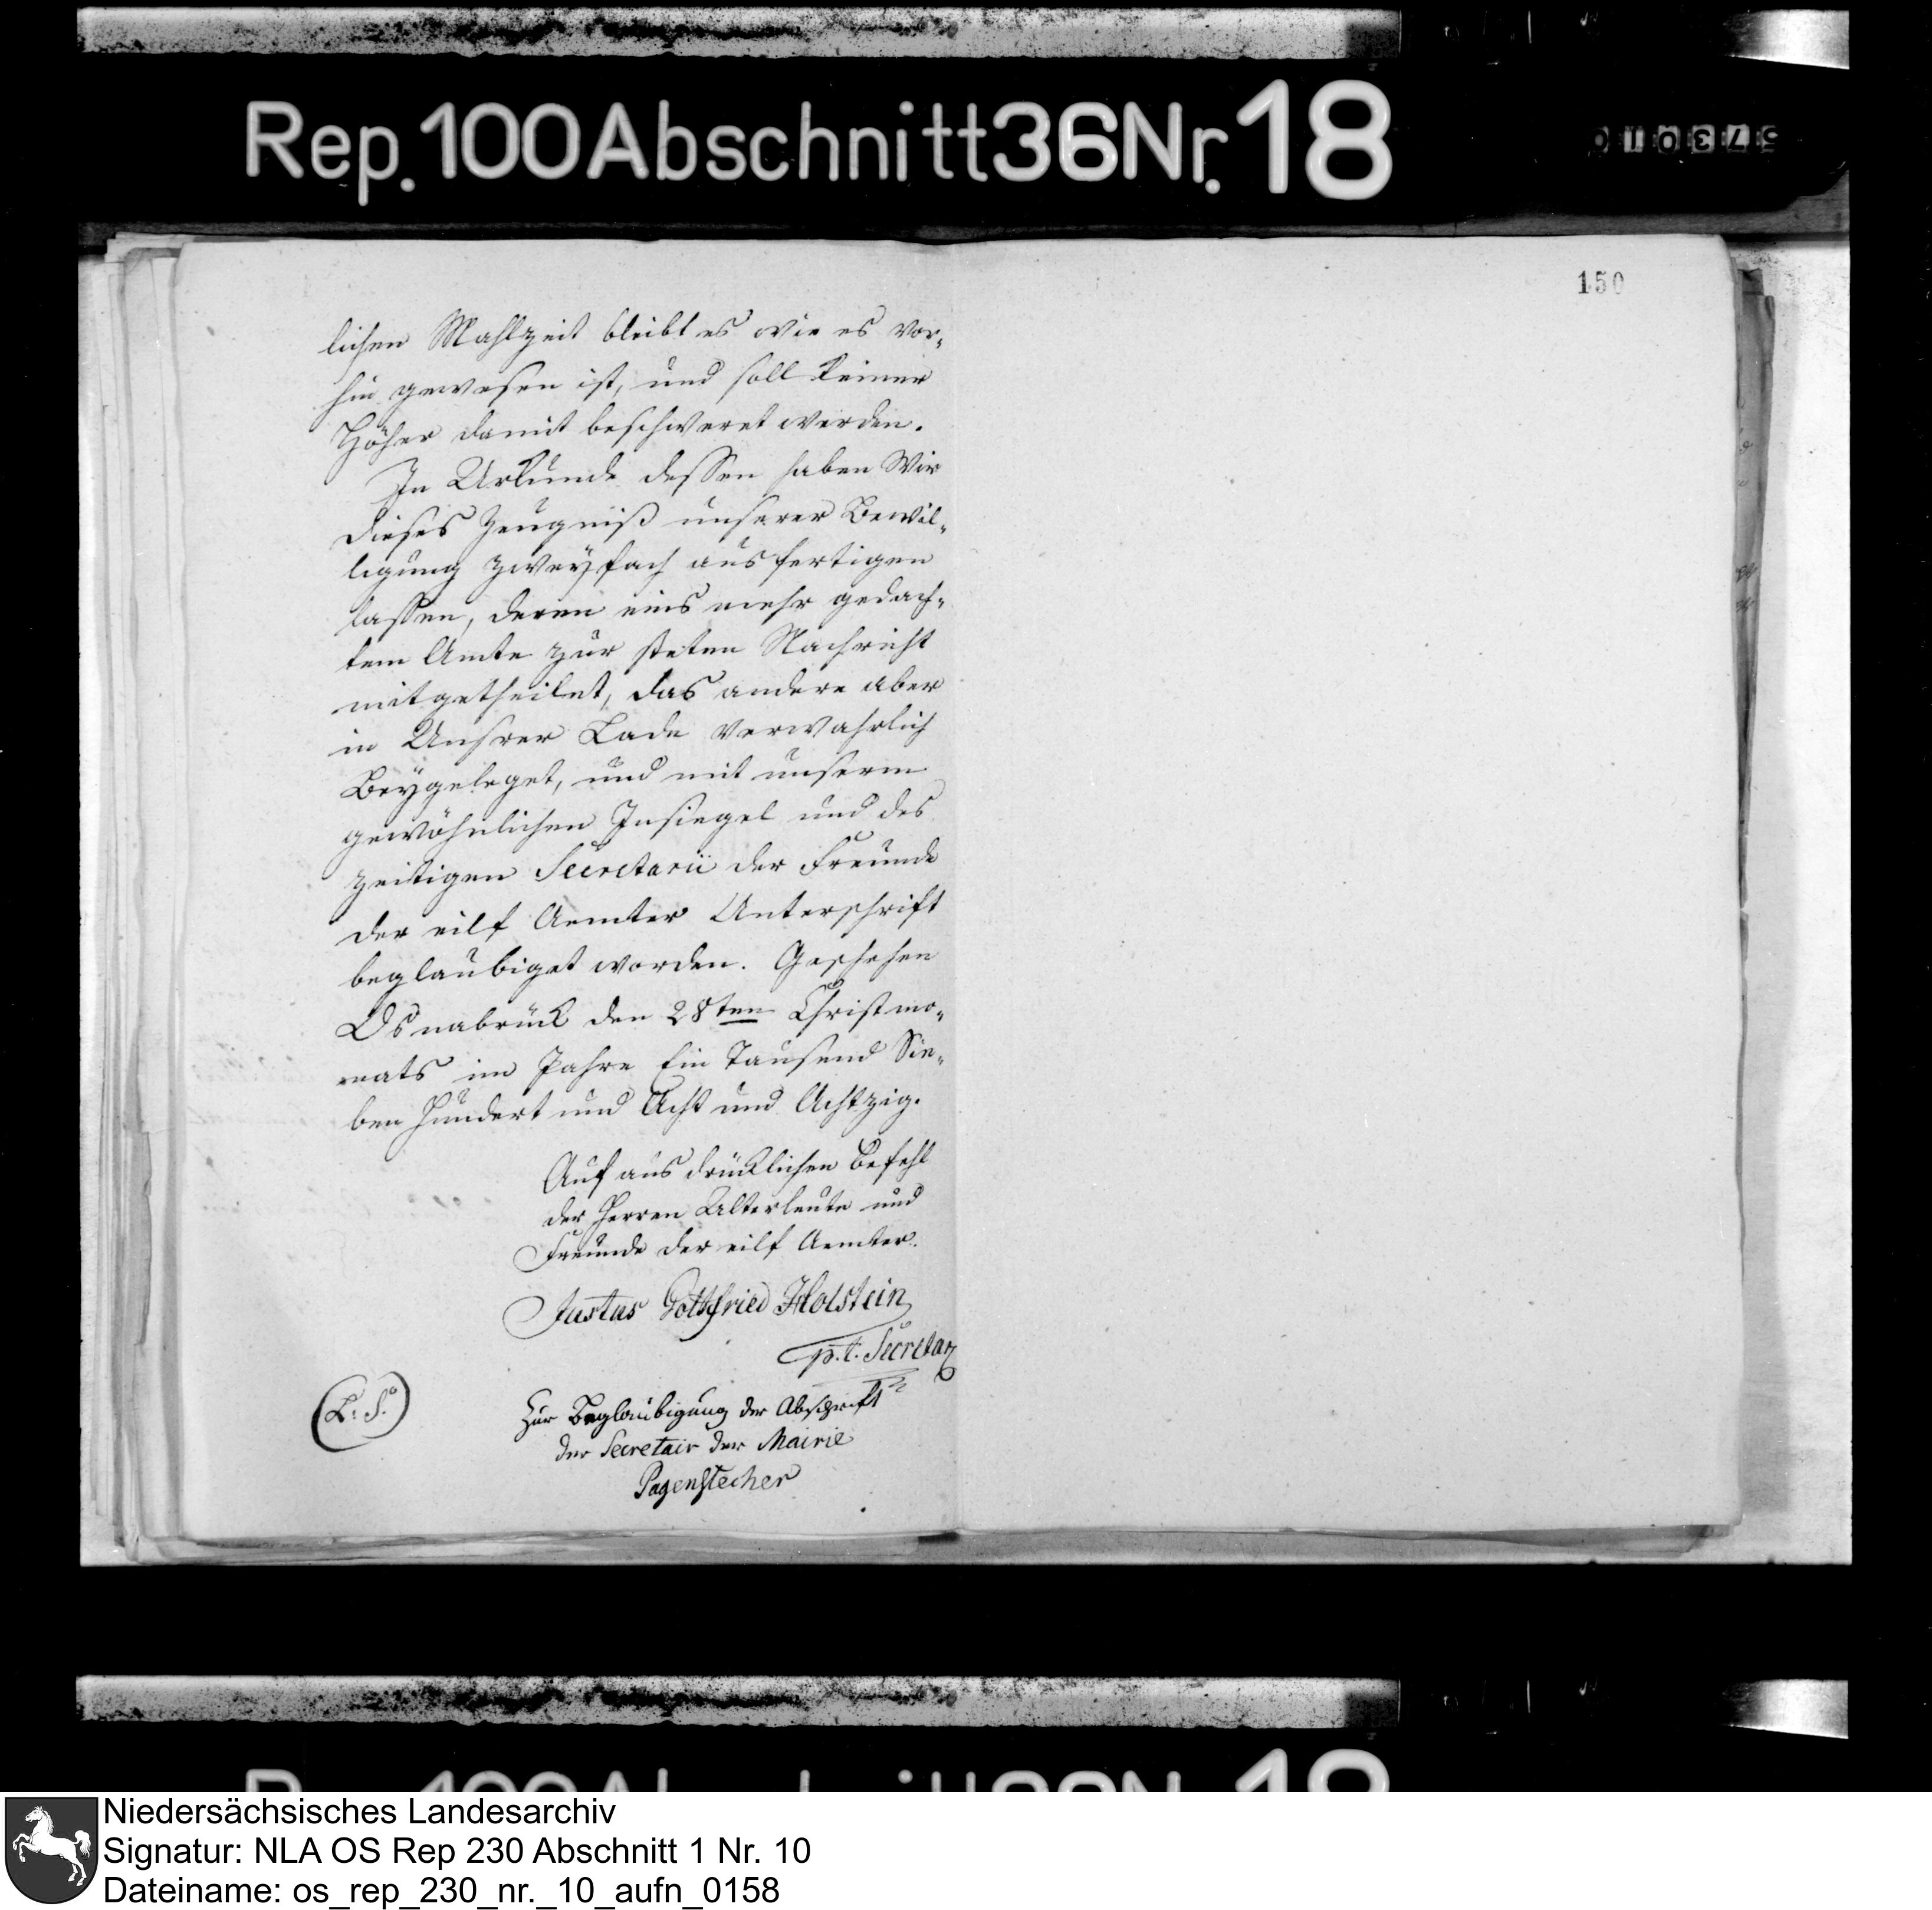 Rep. 100 Abschnitt 36 Nr. 18
150
lichen Mahlzeit bleibt es wie es vor-
hin gewesen ist, und soll keiner
Höher damit beschweret werden.
In Urkunde dessen haben Wir
dieses Zeugniß unserer Bewil-
ligung zweyfach ausfertigen
lassen, deren eins mehr gedach-
tem Amte zur steten Nachricht
mitgetheilet, das andere aber
in Unsrer Lade verwahrlich
Beygeleget, und mit unserm
gewöhnlichen Insiegel und des
zeitigen Secretarii der Freunde
der eilf Aemter Unterschrift
beglaubiget worden. Geschehen
Osnabrück den 28ten Christmo-
nats im Jahre Ein Tausend Sie-
ben Hundert und Acht und Achtzig.
Auf ausdrücklichen Befehl
der Herren Alterleute und
Freunde der eilf Aemter.
Justus Gottfried Holstein
p. t. Secretar
(L. S.)
Zur Beglaubigung der Abschrift
der Secretair der Mairie
Pagenstecher
Niedersächsisches Landesarchiv
Signatur: NLA OS Rep 230 Abschnitt 1 Nr. 10
Dateiname: os_rep_230_nr._10_aufn_0158